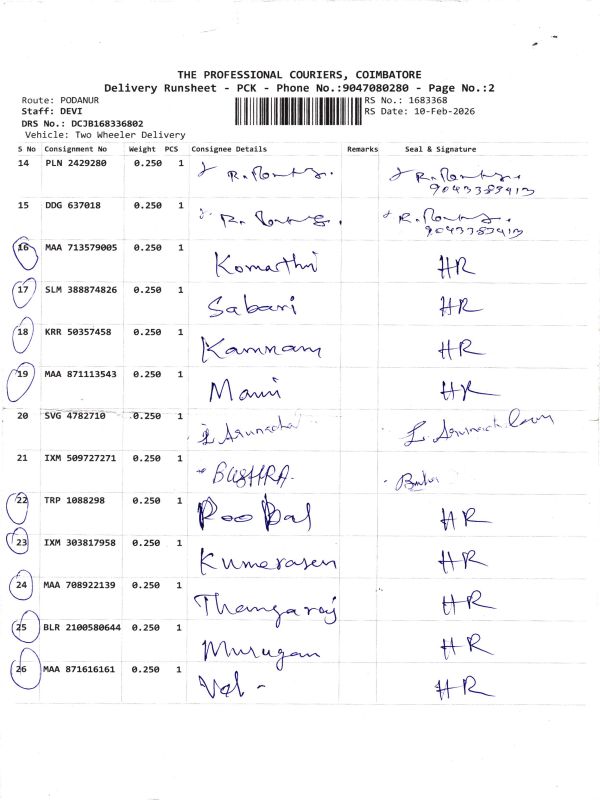 THE PROFESSIONAL COURIERS, COIMBATORE
Delivery Runsheet - PCK - Phone No.:9047080280 - Page No.:2
Route: PODANUR RS No.: 1683368
Staff: DEVI RS Date: 10-Feb-2026
DRS No.: DCJB168336802
Vehicle: Two Wheeler Delivery
S No Consignment No Weight PCS Consignee Details Remarks Seal & Signature
14 PLN 2429280 0.250 1
9043383413
15 DDG 637018 0.250 1
9043383413
16 MAA 713579005 0.250 1 Komarthi HR
17 SLM 388874826 0.250 1 Sabari HR
18 KRR 50357458 0.250 1 Kannam HR
19 MAA 871113543 0.250 1 Mani HR
20 SVG 4782710 0.250 1
21 IXM 509727271 0.250 1 BUSHRA
22 TRP 1088298 0.250 1 HR
23 IXM 303817958 0.250 1 Kumarasen HR
24 MAA 708922139 0.250 1 Thangaraj HR
25 BLR 2100580644 0.250 1 Murugan HR
26 MAA 871616161 0.250 1 Vel - HR